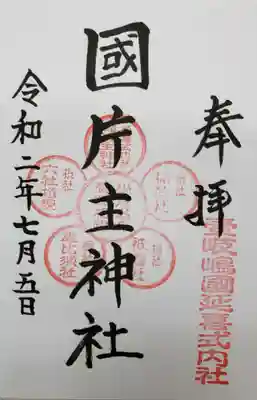 奉拝
壹岐嶋國延喜式内社
國片主神社
令和二年七月五日